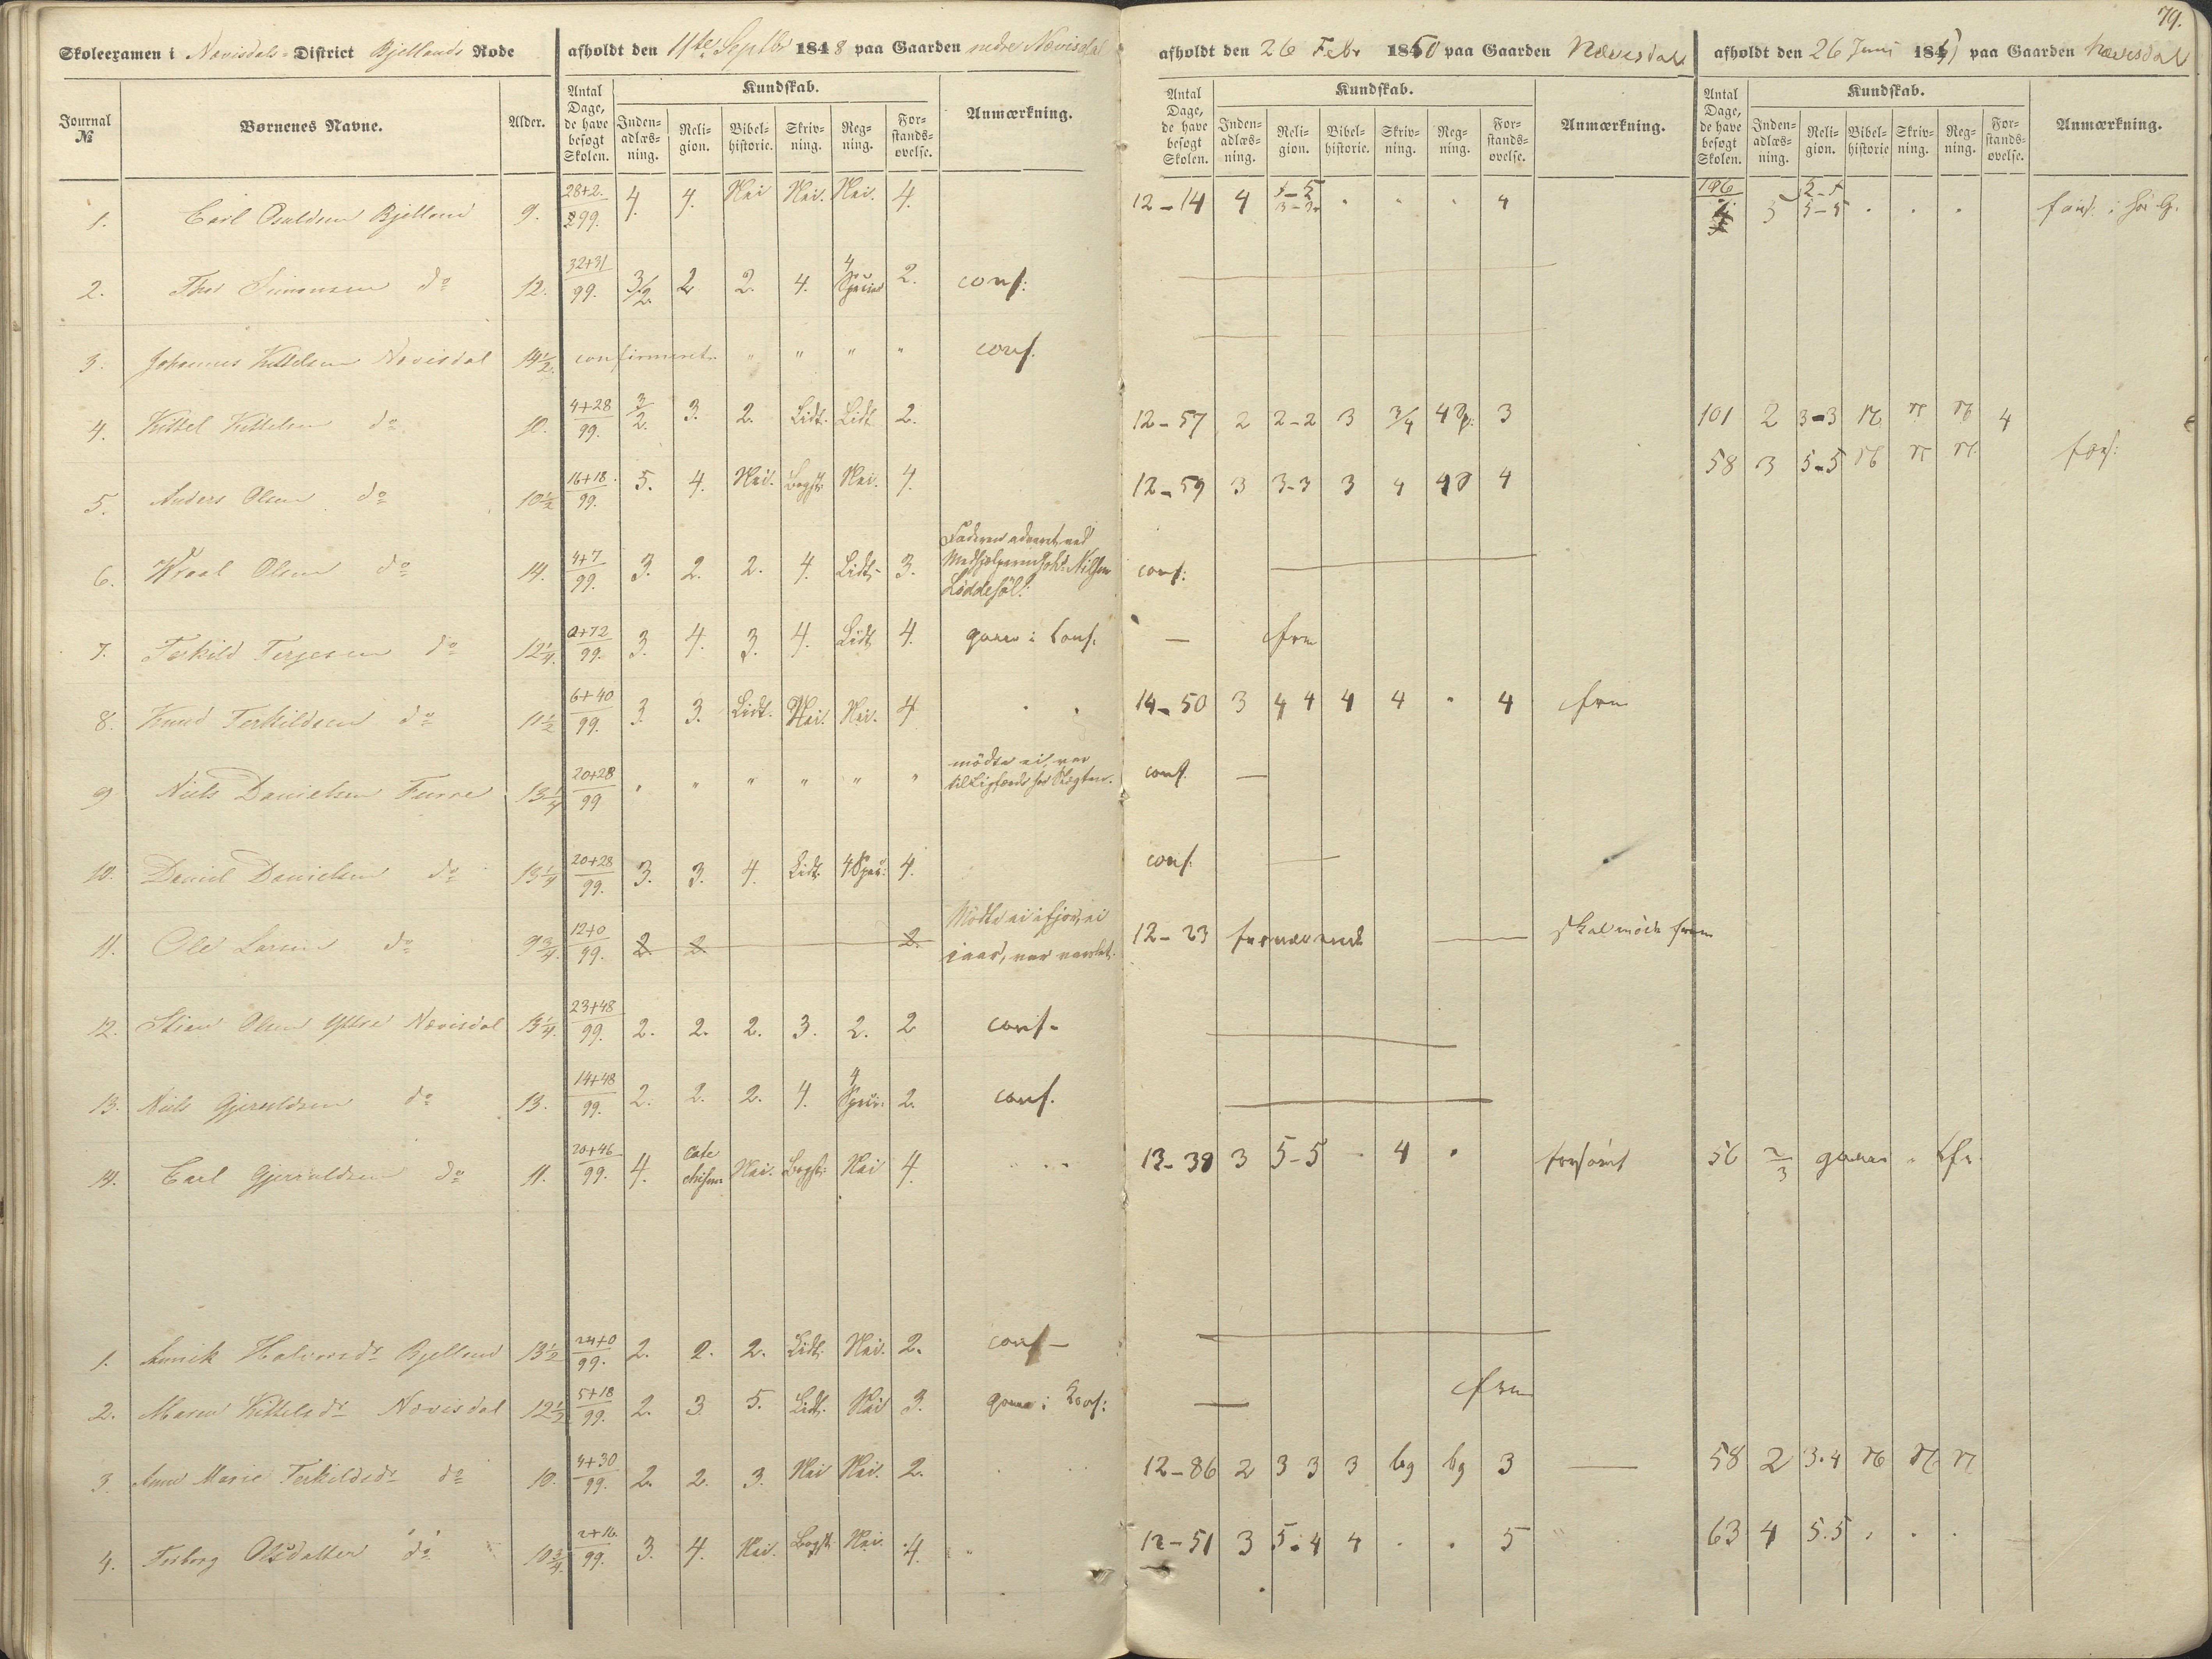 79.
Skoleexamen i Novisdals-District Bjellands Rode
afholdt den 11te Septbr 1848 paa Gaarden indre Novisdal
afholdt den 26 Febr 1850 paa Gaarden Nævesdal
afholdt den 26 Juni 1851 paa Gaarden Nævesdal
Journal № Børnenes Navne. Alder. Antal Dage, de have besøgt Skolen. Kundskab. Inden-adlæs-ning. Reli-gion. Bibel-historie. Skriv-ning. Reg-ning. For-stands-øvelse. Anmærkning.
Antal Dage, de have besøgt Skolen. Kundskab. Inden-adlæs-ning. Reli-gion. Bibel-historie. Skriv-ning. Reg-ning. For-stands-øvelse. Anmærkning.
Antal Dage, de have besøgt Skolen. Kundskab. Inden-adlæs-ning. Reli-gion. Bibel-historie Skriv-ning. Reg-ning. For-stands-øvelse. Anmærkning.
1. Carl Osuldsen Bjelland 9. 28+2. 299. 4. 4. Nei Nei. Nei. 4. 12-14 4 4
2. Thor Simonsen do 12. 32+31 99. 3/2. 2 2. 4. 4 Spesier 2. conf:
3. Johannes Kittelsen Novisdal 14 1/2. confirmeret " " " " conf.
4. Kittel Kittelsen do 10. 4+28 99. 3/2. 3. 2. Lidt. Lidt 2. 12-57 2 2-2 3 3/4 3 101 2 3-3 4
5. Anders Olsen do 10 1/2 16+18. 99. 5. 4. Nei. Bogst: Nei. 4. 12-59 3 3-3 3 4 4 58 3 5-5
6. Olsen do 14. 4+7 99. 3. 2. 2. 4. Lidt. 3. Faderen advaret ved Medhjelperen Johs Nilsen conf:
7. Terkild Terjesen do 12 1/4. 0+72 99. 3. 4. 3. 4. Lidt 4. gaaer i Conf. —
8. Knud Terkildsen do 11 1/2 6+40 99. 3. 3. Lidt. Nei. Nei. 4 14-50 3 4 4 4 4 " 4
9 Niels Danielsen Furre 13 1/4 20+28 99 " " " " " " mödte ei, var conf. —
10. Daniel Danielsen do 13 1/4 20+28 99. 3. 3. 4. Lidt. 4 Spes: 4. conf. —
11. Ole Larsen do 9 3/4. 12+0 99. 2 2 2. Mödte ei ifjor, ei iaar, 12-23 fraværende — skal möde
12. Stian Olsen Yttre Novisdal 13 1/4. 23+48 99. 2. 2. 2. 3. 2. 2 conf.
13. Niels Gjeruldsen do 13. 14+48 99. 2. 2. 2. 4. 4 Spes: 2. conf.
14. Carl Gjeruldsen do 11. 20+46 99. 4. Catechismen Nei. Bogst: Nei 4. 12-38 3 5-5 4 forsömt 56 2/3 gaaer
1. Annik Halvorsdt Bjelland 13 1/2 24+0 99. 2. 2. 2. Lidt Nei. 2. conf —
2. Maren Kittelsdt Novisdal 12 1/2 5+18 99. 2. 3 5. Lidt. Nei 3. gaaer i Conf: —
3. Anne Marie Terkildsdt do 10. 4+30 99. 2. 2. 3. Nei Nei. 2. 12-86 2 3 3 3 bg bg 3 — 58 2 3.4
4. Torborg Olsdatter do 10 3/4. 2+16. 99. 3. 4. Nei. Bogst Nei. 4. 12-51 3 5.4 4 . . 5 63 4 5.5 . . .